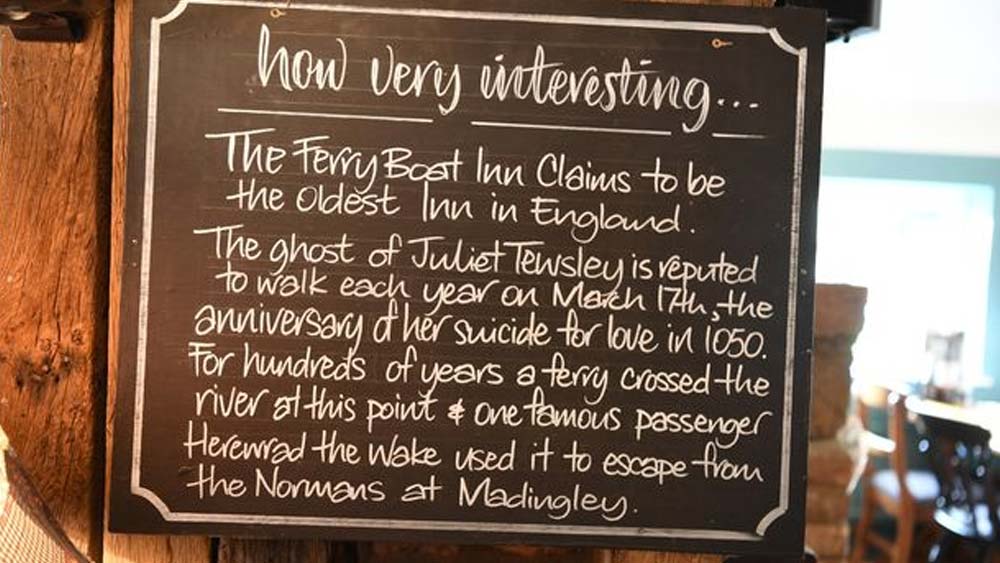 how very interesting...
The Ferry Boat Inn Claims to be
the oldest Inn in England.
The ghost of Juliet Tewsley is reputed
to walk each year on March 17th, the
anniversary of her suicide for love in 1050.
For hundreds of years a ferry crossed the
river at this point & one famous passenger
Herewrad the Wake used it to escape from
the Normans at Madingley.